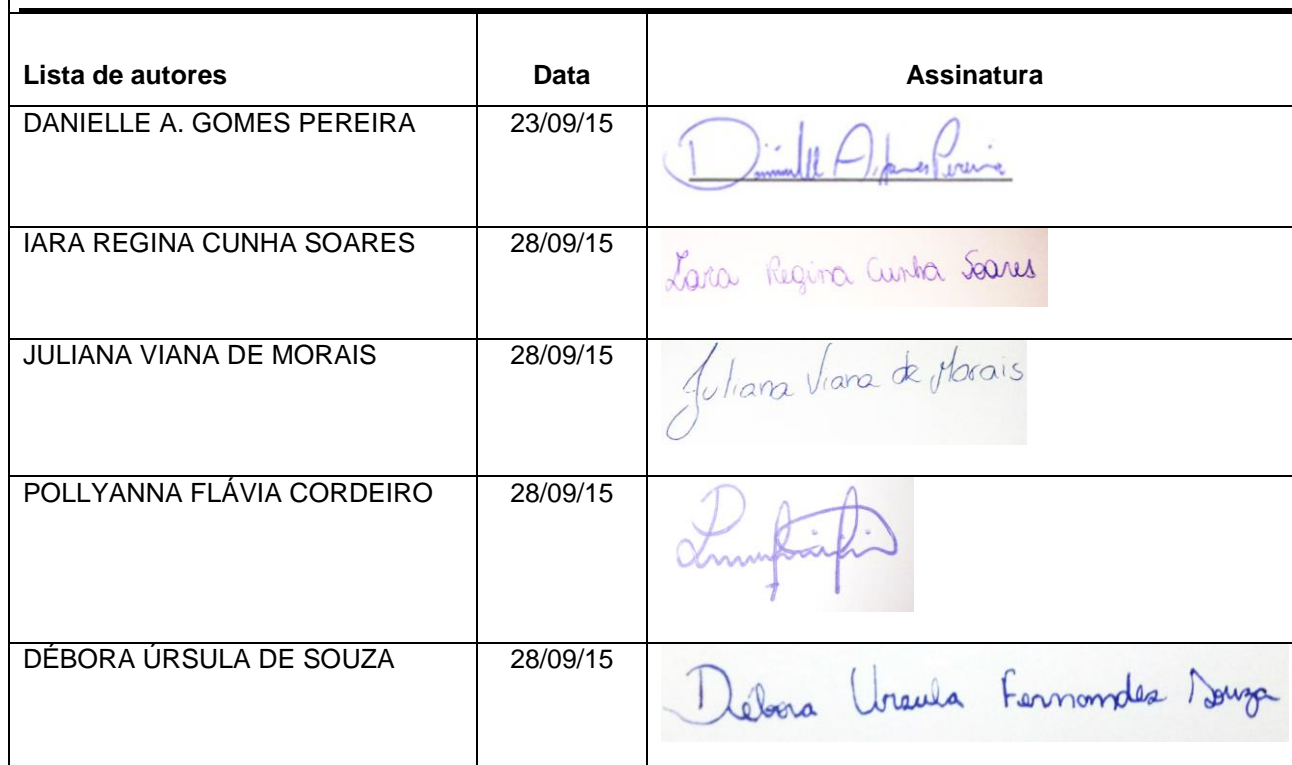 Lista de autores Data Assinatura
DANIELLE A. GOMES PEREIRA 23/09/15 Danielle A. Gomes Pereira
IARA REGINA CUNHA SOARES 28/09/15 Iara Regina Cunha Soares
JULIANA VIANA DE MORAIS 28/09/15 Juliana Viana de Morais
POLLYANNA FLÁVIA CORDEIRO 28/09/15
DÉBORA ÚRSULA DE SOUZA 28/09/15 Débora Ursula Fernandes Souza